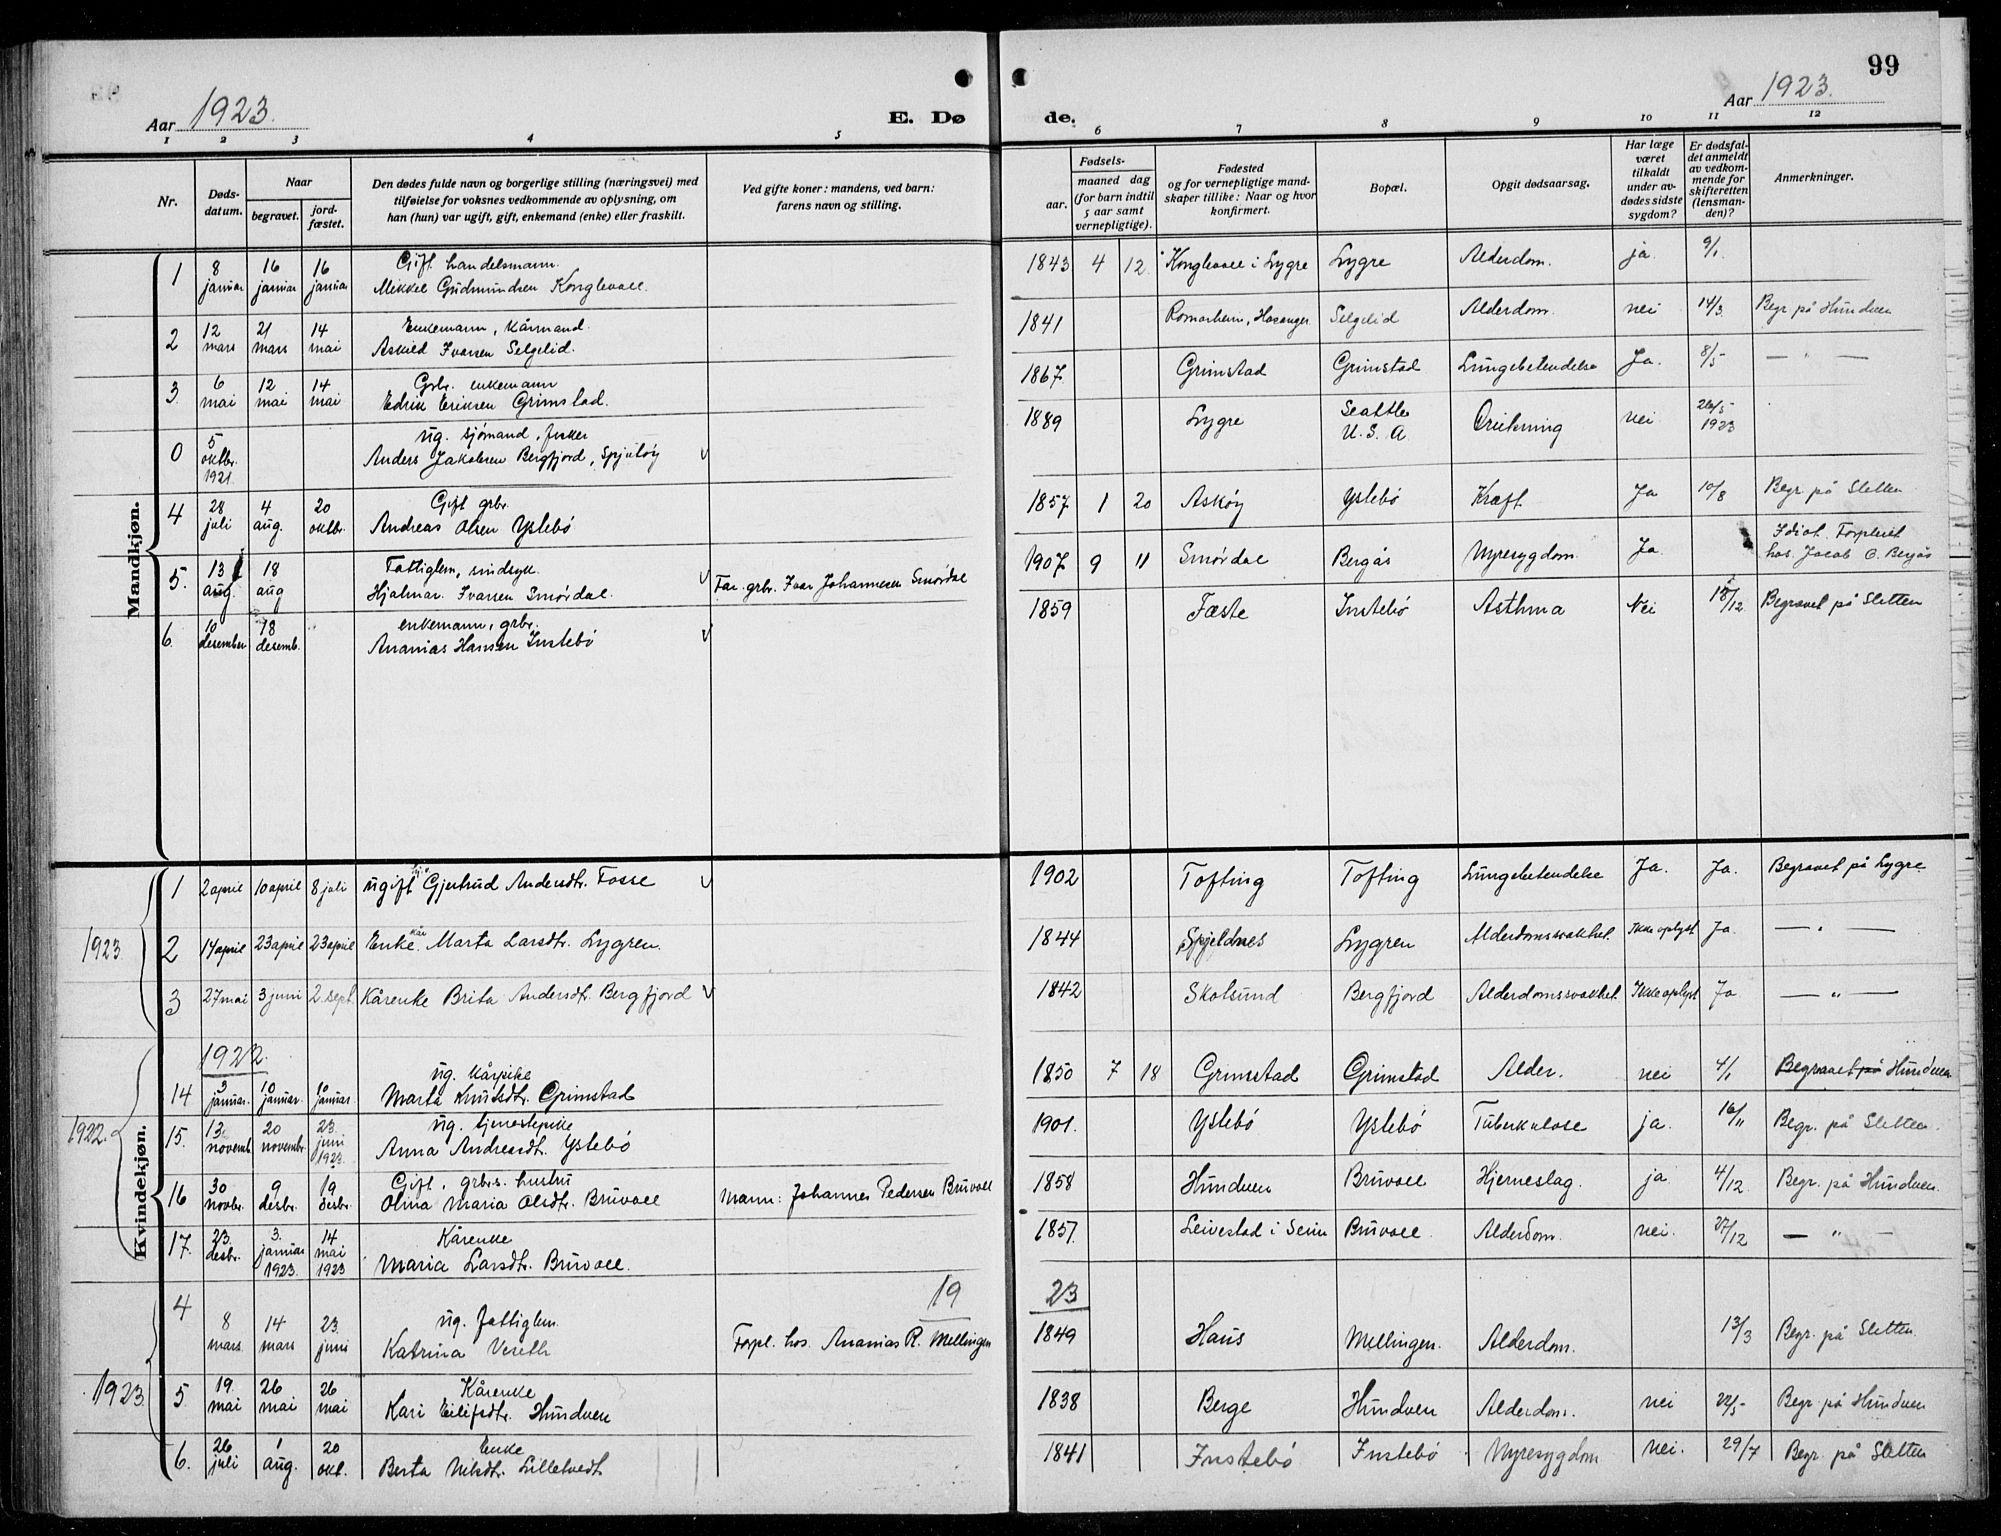 99
Aar 1923.
E. Døde.
Aar 1923.
1 2 3 4 5 6 7 8 9 10 11 12
Nr.
Døds-datum.
Naar
begravet.
jord-fæstet.
Den dødes fulde navn og borgerlige stilling (næringsvei) med
tilføielse for voksnes vedkommende av oplysning, om
han (hun) var ugift, gift, enkemand (enke) eller fraskilt.
Ved gifte koner: mandens, ved barn:
farens navn og stilling.
Fødsels-
aar.
maaned dag
(for barn indtil
5 aar samt
vernepligtige).
Fødested
og for vernepligtige mand-
skaper tillike: Naar og hvor
konfirmert.
Bopæl.
Opgit dødsaarsag.
Har læge
været
tilkaldt
under av-
dødes sidste
sygdom?
Er dødsfal-
det anmeldt
av vedkom-
mende for
skifteretten
(lensman-
den)?
Anmerkninger.
Mandkjøn.
1 8 januar 16 januar 16 januar Gift handelsmann. Mikkel Gudmundsen Konglevoll. 1843 4 12. Konglevoll i Lygre Lygre Alderdom. ja. 9/1.
2 12 mars 21 mars 14 mai Enkemann, kårmand. Askild Ivarsen Selgelid. 1841 Romarheim, Hosanger Selgelid Alderdom. nei 14/3. Begr. på Hundven
3. 6 mai 12 mai 14 mai Grbr. enkemann Edrik Eriksen Grimstad. 1867. Grimstad Grimstad Lungebetendelse Ja. 8/5 — " —
0 5 oktbr. 1921. ug. sjømand, fisker Anders Jakobsen Bergfjord, Spjutøy v 1889 Lygre Seattle U.S.A Drukning nei 26/5 1923
4 28 juli 4 aug. 20 oktbr. Gift grbr. Andreas Olsen Ystebø 1857. 1 20 Askøy Ystebø Kræft. Ja 10/8 Begr. på Sletten
5. 13 aug. 18 aug Fattiglem, sindsyk. Hjalmar Ivarsen Smørdal. v Far. grbr. Ivar Johannesen Smørdal 1907. 9 11 Smørdal Bergås Nyresygdom. Ja. Idiot. Forpleiet hos. Jacob O. Bergås
6. 10 desember 18 desemb. enkemann, grbr. Ananias Hansen Instebø v 1859 Fæste Instebø Asthma Nei 18/12 Begravet på Sletten
Kvindekjøn.
1923.
1 2 april 10 april 8 juli ugift Gjertrud Andersdtr. Fosse v 1902 Tofting Tofting Lungebetendelse Ja. Ja. Begravet på Lygre
2 14 april 23 april 23 april Enke. kår Marta Larsdtr. Lygren. 1844 Spjeldnes Lygren Alderdomssvakhet. Ikke oplyst Ja. — " —
3 27 mai 3 juni 2. sept. Kårenke Brita Andersdtr. Bergfjord v 1842 Skotsund Bergfjord Alderdomssvakhet. Ikke oplyst Ja — " —
1922.
1922.
14 3 januar. 10 januar. 10 januar. ug. kårpike Marta Knutsdtr. Grimstad 1850 7 18 Grimstad Grimstad Alder. nei 4/1 Begravet på Hundven
15. 13. novemb. 20 novembr. 23. juni 1923. ug. tjenestepike Anna Andreasdt. Ystebø 1901. Ystebø Ystebø Tuberkulose ja. 16/11 Begr. på Sletten.
16 30 novbr. 9 desbr. 19 desbr. Gift, grbrs. hustru Olina Maria Olsdtr. Bruvoll Mann: Johannes Pedersen Bruvoll 1858 Hundven Bruvoll Hjerneslag. ja. 4/12. Begr. på Hundven.
17. 23. desbr. 3. januar 1923. 14 mai 1923 Kårenke Maria Larsdtr. Bruvoll. 1857. Leivestad i Seim Bruvoll. Alderdom. nei. 27/12 — " —
1923
1923.
4 8 mars. 14 mars 23. juni ug. fattiglem. Katrina Veseth Forpl. hos. Ananias R. Mellingen 1849 Haus Mellingen. Alderdom. 13/3 Begr. på Sletten.
5 19. mai 26 mai 26 mai Kårenke Kari Eilifsdtr. Hundven 1838 Berge Hundven Alderdom. nei 22/5 Begr. på Hundven
6. 26 juli 1 aug. 20 okt. Enke Berta Nilsdtr. Lilletvedt 1841 Instebø Instebø Nyresygdom nei. 29/7 Begr. på Sletten